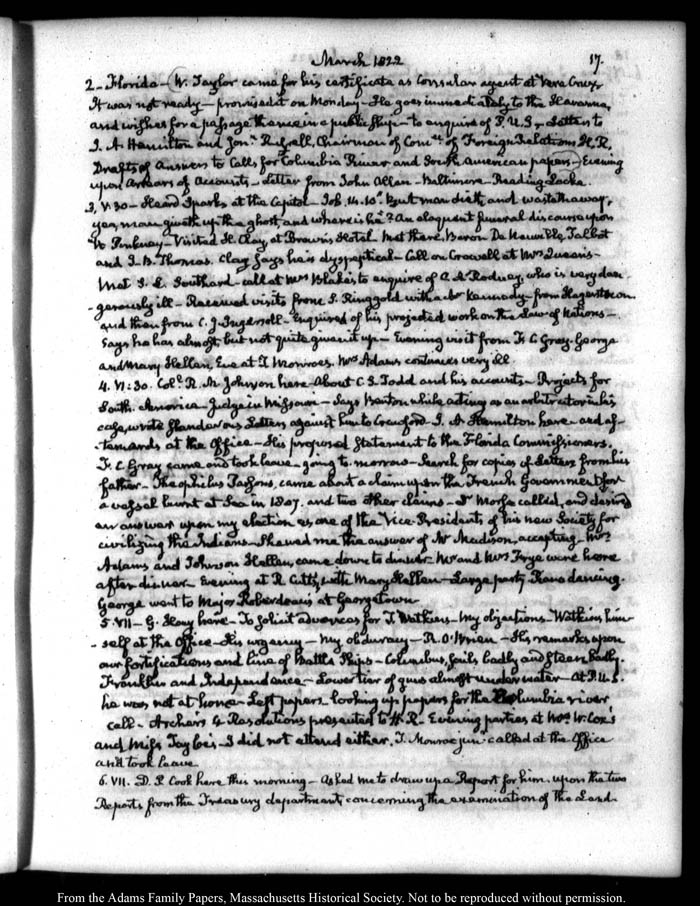 March 1822 17.
2 – Florida – W. Taylor came for his certificate as Consular agent at Vera Cruz,
It was not ready – promised it on Monday – He goes immediately to the Havanna,
and wishes for a passage thence in a public ship – to enquire of P.U.S. – Letters to
J. A. Hamilton and Jonn. Russell, Chairman of Comee. of Foreign Relations H.R.
Drafts of Answers to Calls for Columbia River and South American papers – Evening
upon Arrears of Accounts – Letter from John Allen – Baltimore – Reading Locke.
3. V:30 – Heard Sparks at the Capitol – Job. 14. 10. But man dieth, and wasteth away,
yea, man giveth up the ghost, and where is he? An eloquent funeral discourse upon
W. Pinkney – Visited H. Clay, at Brown's Hotel. Met there, Baron De Neuville, Talbot
and J. B. Thomas. Clay says he is dyspeptical – Call on Crowell at Mrs Queen's –
Met S. L. Southard – call at Mrs Blake's to enquire of C. A. Rodney, who is very dan
-gerously ill – Received visits from S. Ringgold with a Mr Kennedy from Hagerstown.
and then from C. J. Ingersoll – Enquired of his projected work on the Law of Nations –
Says he has almost, but not quite given it up – Evening visit from F. C. Gray. George
and Mary Hellen, Eve at J Monroe's. Mrs Adams continues very ill
4. VI:30. Coll. R. M. Johnson here about C. S. Todd and his accounts – Projects for
South America – Judge in Missouri – Says Barton while acting as an arbitrator in his
case, wrote slanderous Letters against him to Crawford. J. A. Hamilton here and af-
-terwards at the Office – His proposed Statement to the Florida Commissioners.
F. C. Gray came and took leave – going to morrow – Search for copies of Letters from his
father – Theophilus Parsons, came about a claim upon the French Government for
a vessel burnt at Sea in 1807. and two other claims – Dr Morse called, and desired
an answer upon my election as one of the Vice-Presidents of his new Society for
civilizing the Indians – Shewed me the answer of Mr Madison, accepting – Mrs
Adams and Johnson Hellen, came down to dinner. Mr and Mrs Frye were here
after dinner. Evening at R. Cutts, with Mary Hellen – Large party – Piano dancing.
George went to Major Roberdeau's at Georgetown
5. VII – G. Hay here – To solicit advances for T. Watkins – My objections – Watkins him
-self at the Office – His urgency – My obduracy – R. O'Brien – His remarks upon
our fortifications and line of Battle Ships – Columbus, sails badly and steers badly –
Franklin and Independence – Lower tier of guns almost under water – At P.U.S.
he was not at home – Left papers – looking up papers for the Columbia river
call – Archer's 4 Resolutions presented to H. R. Evening parties at Mrs. W. Cox's
and Miss Tayloe's – I did not attend either. J. Monroe junr. called at the Office
and took leave
6. VII. D. P. Cook here this morning – Asked me to draw up a Report for him, upon the two
Reports from the Treasury department, concerning the examination of the Land-
From the Adams Family Papers, Massachusetts Historical Society. Not to be reproduced without permission.